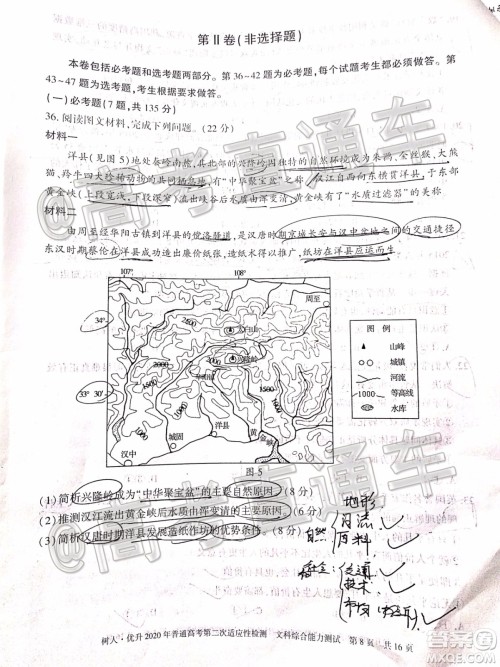 第Ⅱ卷(非选择题)
本卷包括必考题和选考题两部分。第36~42题为必考题,每个试题考生都必须做答。第
43~47题为选考题,考生根据要求做答。
(一)必考题(7题,共135分)
36.阅读图文材料,完成下列问题。(22分)
材料一
洋县(见图5)地处秦岭南麓,其北部的兴隆岭因独特的自然环境成为朱鹮、金丝猴、大熊
猫、羚牛四大珍稀动物的共同栖息地,有"中华聚宝盆"之称。汉江自西向东横贯洋县,于东部
黄金峡(上段宽浅,下段深窄)出峡谷后水质由浑变清,黄金峡有了"水质过滤器"的美称。
材料二
由周至经华阳古镇到洋县的傥洛驿道,是汉唐时期京城长安与汉中盆地之间的交通捷径。
东汉时期蔡伦在洋县成功造出廉价纸张,造纸术得以推广,纸坊在洋县应运而生。
107°
108°
34°
33°30′
周至
太白山
兴隆岭
华阳镇
2500
2000
1500
1000
1500
1000
洋县
城固
汉中
黄金峡
图例
山峰
城镇
河流
1000
等高线
水库
图5
(1)简析兴隆岭成为"中华聚宝盆"的主要自然原因。(8分)
(2)推测汉江流出黄金峡后水质由浑变清的主要原因。(8分)
(3)简析汉唐时期洋县发展造纸作坊的优势条件。(6分)
地形
河流
自然
原料
社会:交通
技术
市场
树人·优升2020年普通高考第二次适应性检测 文科综合能力测试 第8页 共16页
高考直通车